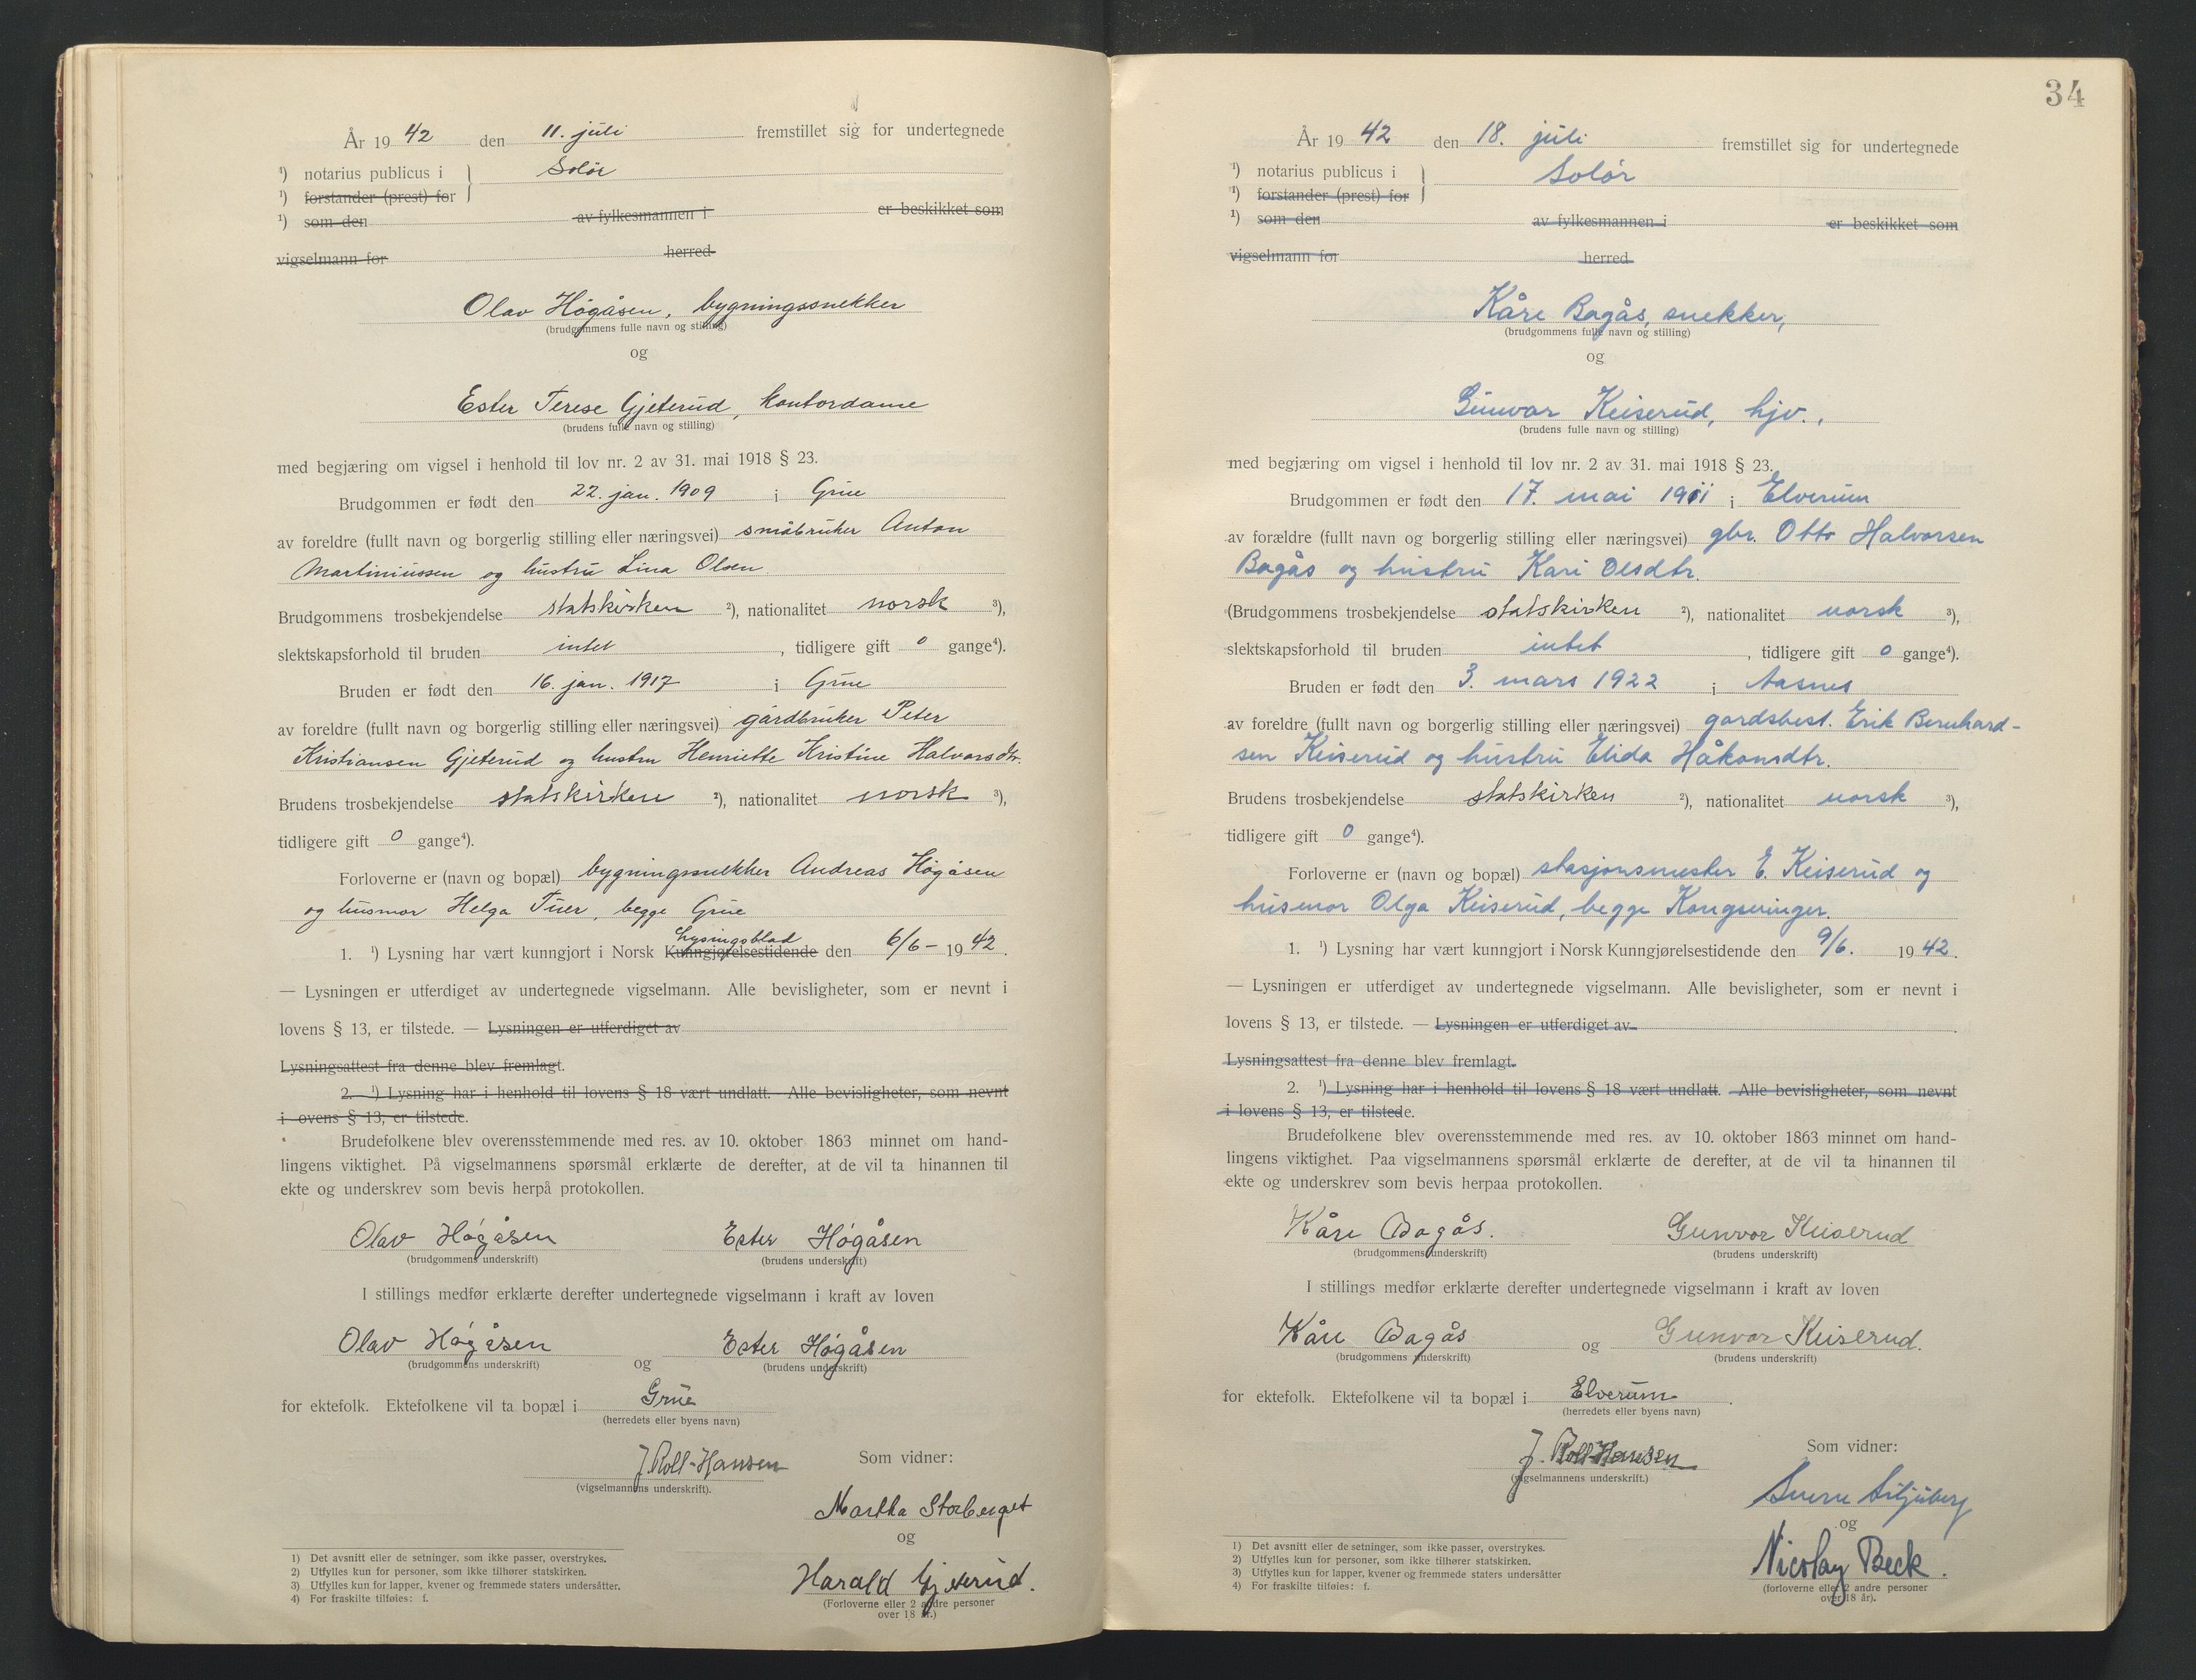 År 1942 den 11. juli fremstillet sig for undertegnede
¹) notarius publicus i } Solør
¹) forstander (prest) for
¹) som den av fylkesmannen i er beskikket som
vigselmann for herred
Olav Høgåsen, bygningssnekker
(brudgommens fulle navn og stilling)
og
Ester Terese Gjeterud, kontordame
(brudens fulle navn og stilling)
med begjæring om vigsel i henhold til lov nr. 2 av 31. mai 1918 § 23.
Brudgommen er født den 22. jan. 1909 i Grue
av foreldre (fullt navn og borgerlig stilling eller næringsvei) småbruker Anton
Martiniussen og hustru Lina Olsen.
Brudgommens trosbekjendelse statskirken ²), nationalitet norsk ³),
slektskapsforhold til bruden intet, tidligere gift 0 gange⁴).
Bruden er født den 16. jan. 1917 i Grue
av foreldre (fullt navn og borgerlig stilling eller næringsvei) gårdbruker Peter
Kristiansen Gjeterud og hustru Henriette Kristine Halvorsdtr.
Brudens trosbekjendelse statskirken ²), nationalitet norsk ³),
tidligere gift 0 gange⁴).
Forloverne er (navn og bopæl) bygningssnekker Andreas Høgåsen
og husmor Helga Tuer, begge Grue
Lysingsblad
1. ¹) Lysning har vært kunngjort i Norsk Kunngjørelsestidende den 6/6 - 1942.
— Lysningen er utferdiget av undertegnede vigselmann. Alle bevisligheter, som er nevnt i
lovens § 13, er tilstede. — Lysningen er utferdiget av
Lysningsattest fra denne blev fremlagt.
2. ¹) Lysning har i henhold til lovens § 18 vært undlatt. Alle bevisligheter, som nevnt
i ovens § 13, er tilstede.
Brudefolkene blev overensstemmende med res. av 10. oktober 1863 minnet om hand-
lingens viktighet. På vigselmannens spørsmål erklærte de derefter, at de vil ta hinannen til
ekte og underskrev som bevis herpå protokollen.
Olav Høgåsen Ester Høgåsen
(brudgommens underskrift) (brudens underskrift)
I stillings medfør erklærte derefter undertegnede vigselmann i kraft av loven
Olav Høgåsen og Ester Høgåsen
(brudgommens underskrift) (brudens underskrift)
for ektefolk. Ektefolkene vil ta bopæl i Grue
(herredets eller byens navn)
J. Roll-Hansen Som vidner:
(vigselmannens underskrift).
Martha Storberget
og
Harald Gjeterud.
(Forloverne eller 2 andre personer
over 18 år.)
1) Det avsnitt eller de setninger, som ikke passer, overstrykes.
2) Utfylles kun for personer, som ikke tilhører statskirken.
3) Utfylles kun for lapper, kvener og fremmede staters undersåtter.
4) For fraskilte tilføies: f.
34
År 1942 den 18. juli fremstillet sig for undertegnede
¹) notarius publicus i } Solør
¹) forstander (prest) for
¹) som den av fylkesmannen i er beskikket som
vigselmann for herred
Kåre Bagås, snekker,
(brudgommens fulle navn og stilling)
og
Gunvor Keiserud, hjv.,
(brudens fulle navn og stilling)
med begjæring om vigsel i henhold til lov nr. 2 av 31. mai 1918 § 23.
Brudgommen er født den 17. mai 1911 i Elverum
av forældre (fullt navn og borgerlig stilling eller næringsvei) gbr. Otto Halvorsen
Bagås og hustru Kari Olsdtr.
(Brudgommens trosbekjendelse statskirken ²), nationalitet norsk ³),
slektskapsforhold til bruden intet, tidligere gift 0 gange⁴).
Bruden er født den 3. mars 1922 i Aasnes
av foreldre (fullt navn og borgerlig stilling eller næringsvei) gardsbest. Erik Bernhard-
sen Keiserud og hustru Elida Håkonsdtr.
Brudens trosbekjendelse statskirken ²), nationalitet norsk ³),
tidligere gift 0 gange⁴).
Forloverne er (navn og bopæl) stasjonsmester E. Keiserud og
husmor Olga Keiserud, begge Kongsvinger.
1. ¹) Lysning har vært kunngjort i Norsk Kunngjørelsestidende den 9/6. 1942.
— Lysningen er utferdiget av undertegnede vigselmann. Alle bevisligheter, som er nevnt i
lovens § 13, er tilstede. — Lysningen er utferdiget av
Lysningsattest fra denne blev fremlagt.
2. ¹) Lysning har i henhold til lovens § 18 vært undlatt. Alle bevisligheter, som nevnt
i lovens § 13, er tilstede.
Brudefolkene blev overensstemmende med res. av 10. oktober 1863 minnet om hand-
lingens viktighet. Paa vigselmannens spørsmål erklærte de derefter, at de vil ta hinannen til
ekte og underskrev som bevis herpaa protokollen.
Kåre Bagås. Gunvor Keiserud
(brudgommens underskrift) (brudens underskrift)
I stillings medfør erklærte derefter undertegnede vigselmann i kraft av loven
Kåre Bagås og Gunvor Keiserud.
(brudgommens underskrift) (brudens underskrift)
for ektefolk. Ektefolkene vil ta bopæl i Elverum.
(herredets eller byens navn)
J. Roll-Hansen Som vidner:
(vigselmannens underskrift.)
og
Nicolay Beck.
(forloverne eller 2 andre personer
over 18 år).
1) Det avsnitt eller de setninger, som ikke passer, overstrykes.
2) Utfylles kun for personer, som ikke tilhører statskirken.
3) Utfylles kun for lapper, kvener og fremmede staters undersåtter
4) For fraskilte tilføies: f.